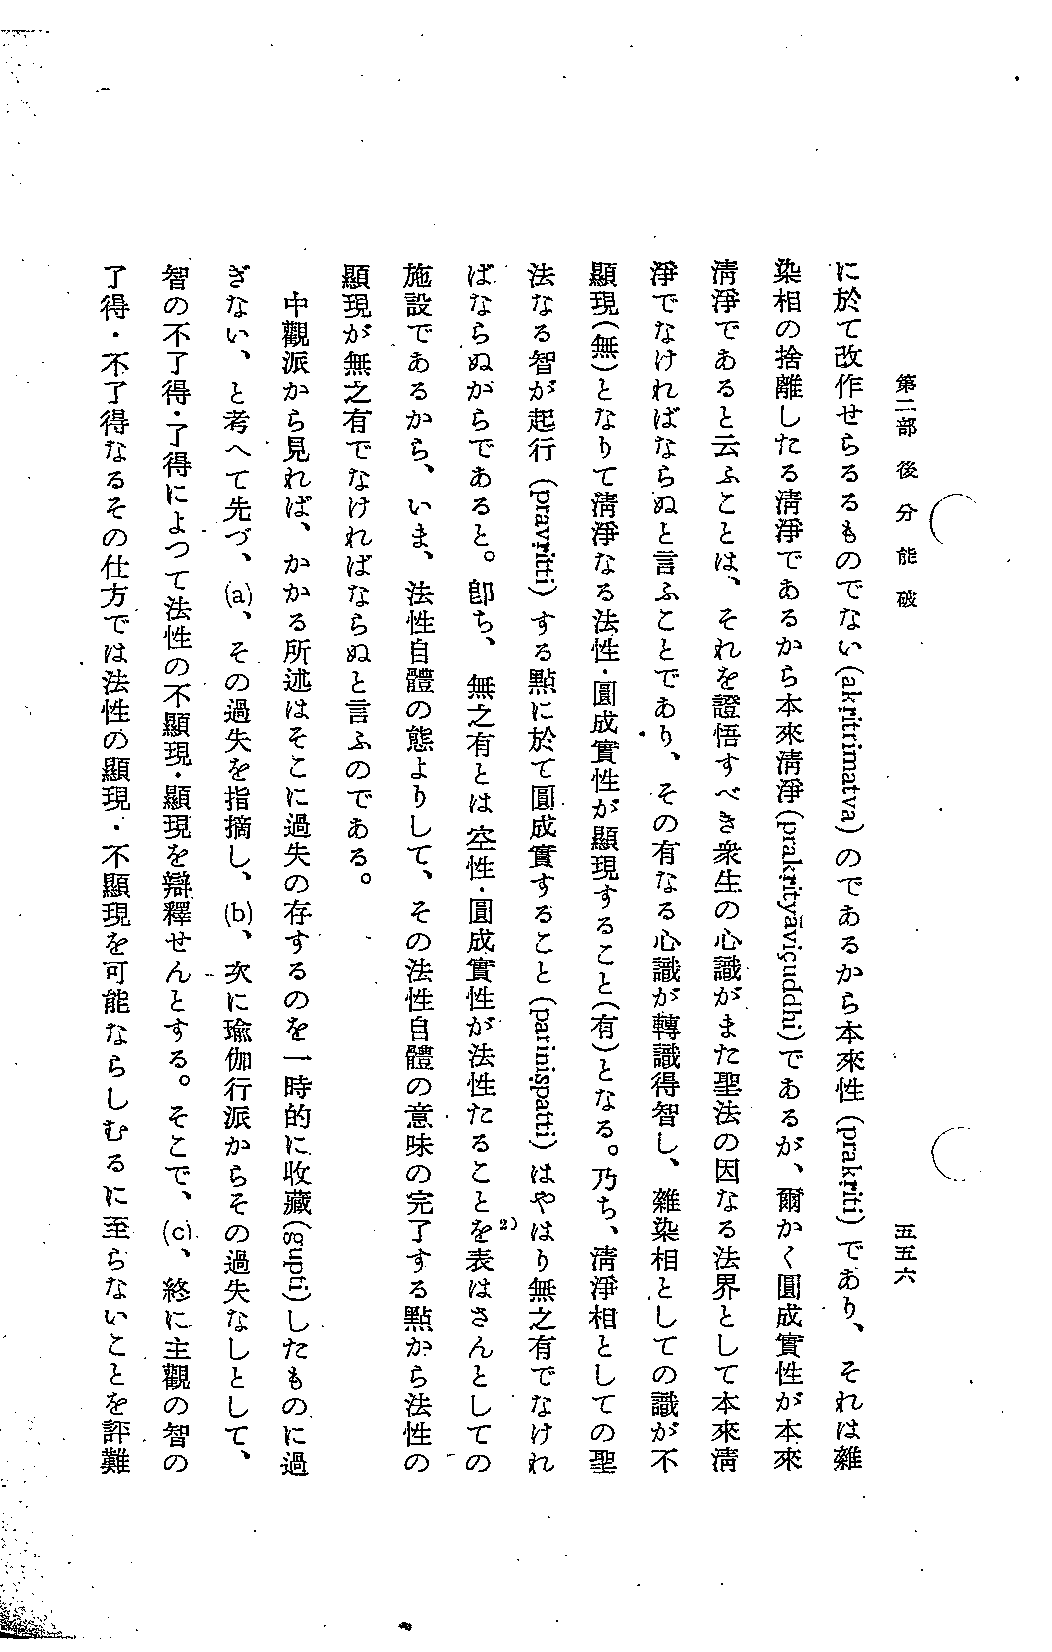 第二部 後分能破
五五六
に於て改作せらるるものでない(akṛitrimatva)のであるから本來性(prakṛiti)であり、それは雜
染相の捨離したる淸淨であるから本來淸淨(prakṛityāviçuddhi)であるが、爾かく圓成實性が本來
淸淨であると云ふことは、それを證悟すべき衆生の心識がまた聖法の因なる法界として本來淸
淨でなければならぬと言ふことであり、その有なる心識が轉識得智し、雜染相としての識が不
顯現(無)となりて淸淨なる法性・圓成實性が顯現すること(有)となる。乃ち、淸淨相としての聖
法なる智が起行(pravṛitti)する點に於て圓成實すること(pariniṣpatti)はやはり無之有でなけれ
ばならぬがらであると。卽ち、無之有とは空性・圓成實性が法性たることを²⁾表はさんとしての
施設であるから、いま、法性自體の態よりして、その法性自體の意味の完了する點から法性の
顯現が無之有でなければならぬと言ふのである。
中觀派から見れば、かかる所述はそこに過失の存するのを一時的に收藏(gupti)したものに過
ぎない、と考へて先づ、(a)、その過失を指摘し、(b)、次に瑜伽行派からその過失なしとして、
智の不了得・了得によつて法性の不顯現・顯現を辯釋せんとする。そこで、(c)、終に主觀の智の
了得・不了得なるその仕方では法性の顯現・不顯現を可能ならしむるに至らないことを評難